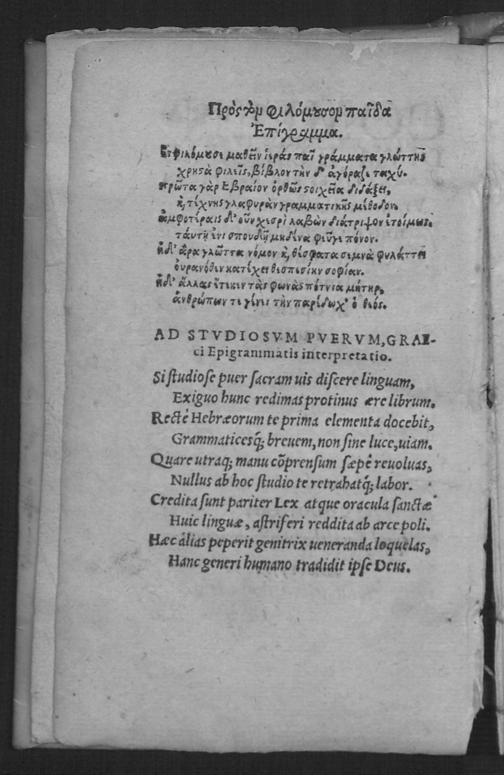 Πρὸς τὸν φιλόμουσον παῖδα
Ἐπίγραμμα.
φιλόμουσε μαθεῖν ἱερᾶς παῖ γράμματα γλώττης
χρηστὰ φιλεῖς, βίβλον τήνδ' ἀγόραζε ταχύ.
πρῶτα γὰρ Ἑβραίων ὀρθῶς στοιχεῖα διδάξει,
κ, τέχνης γλαφυρὰν γραμματικῆς μέθοδον.
ἀμφοτέραις δ' οὖν χερσὶ λαβὼν διάτριψον ἑτοίμως
ταύτῃ ἐνὶ σπουδῇ μηδένα φεῦγε πόνον.
ἥδ' ἄρα γλῶττα νόμον κ, θέσφατα σεμνὰ φυλάττει
οὐρανόθεν κατέχει θεσπεσίην σοφίαν.
ἥδ' ἄλλας ἔτικεν τὰς φωνὰς πότνια μήτηρ,
ἀνθρώπων τε γένει τὴν παρέδωχ' ὁ θεός.
AD STVDIOSVM PVERVM, GRAE-
ci Epigrammatis interpretatio.
Si studiose puer sacram uis discere linguam,
Exiguo hunc redimas protinus ære librum.
Rectè Hebræorum te prima elementa docebit,
Grammaticesq; breuem, non sine luce, uiam.
Quare utraq; manu cõprensum sæpè reuoluas,
Nullus ab hoc studio te retrahatq; labor.
Credita sunt pariter Lex atque oracula sanctæ
Huic linguæ, astriferi reddita ab arce poli.
Hæc alias peperit genitrix ueneranda loquelas,
Hanc generi humano tradidit ipse Deus.